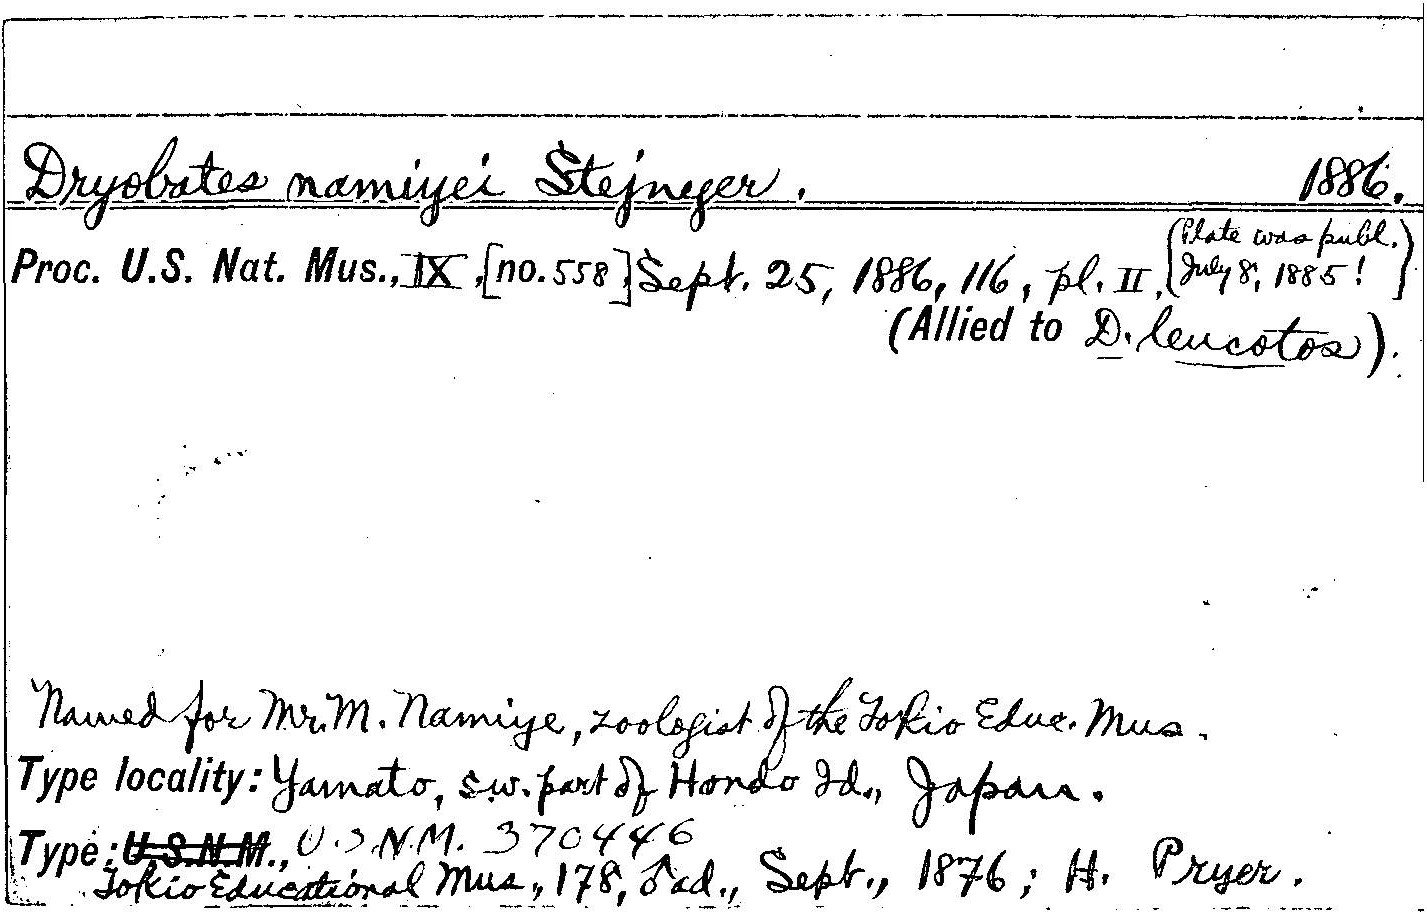 Dryobates namiyei Stejneger. 1886.
Proc. U.S. Nat. Mus., IX, [no. 558], Sept. 25, 1886, 116, pl. II, (Plate was publ. July 8, 1885!)
(Allied to D. leucotos).
Named for Mr. M. Namiye, zoologist of the Tokio Educ. Mus.
Type locality: Yamato, s.w. part of Hondo Id., Japan.
Type: U.S.N.M., U.S.N.M. 370446
Tokio Educational Mus., 178, ♂ ad., Sept., 1876; H. Pryer.